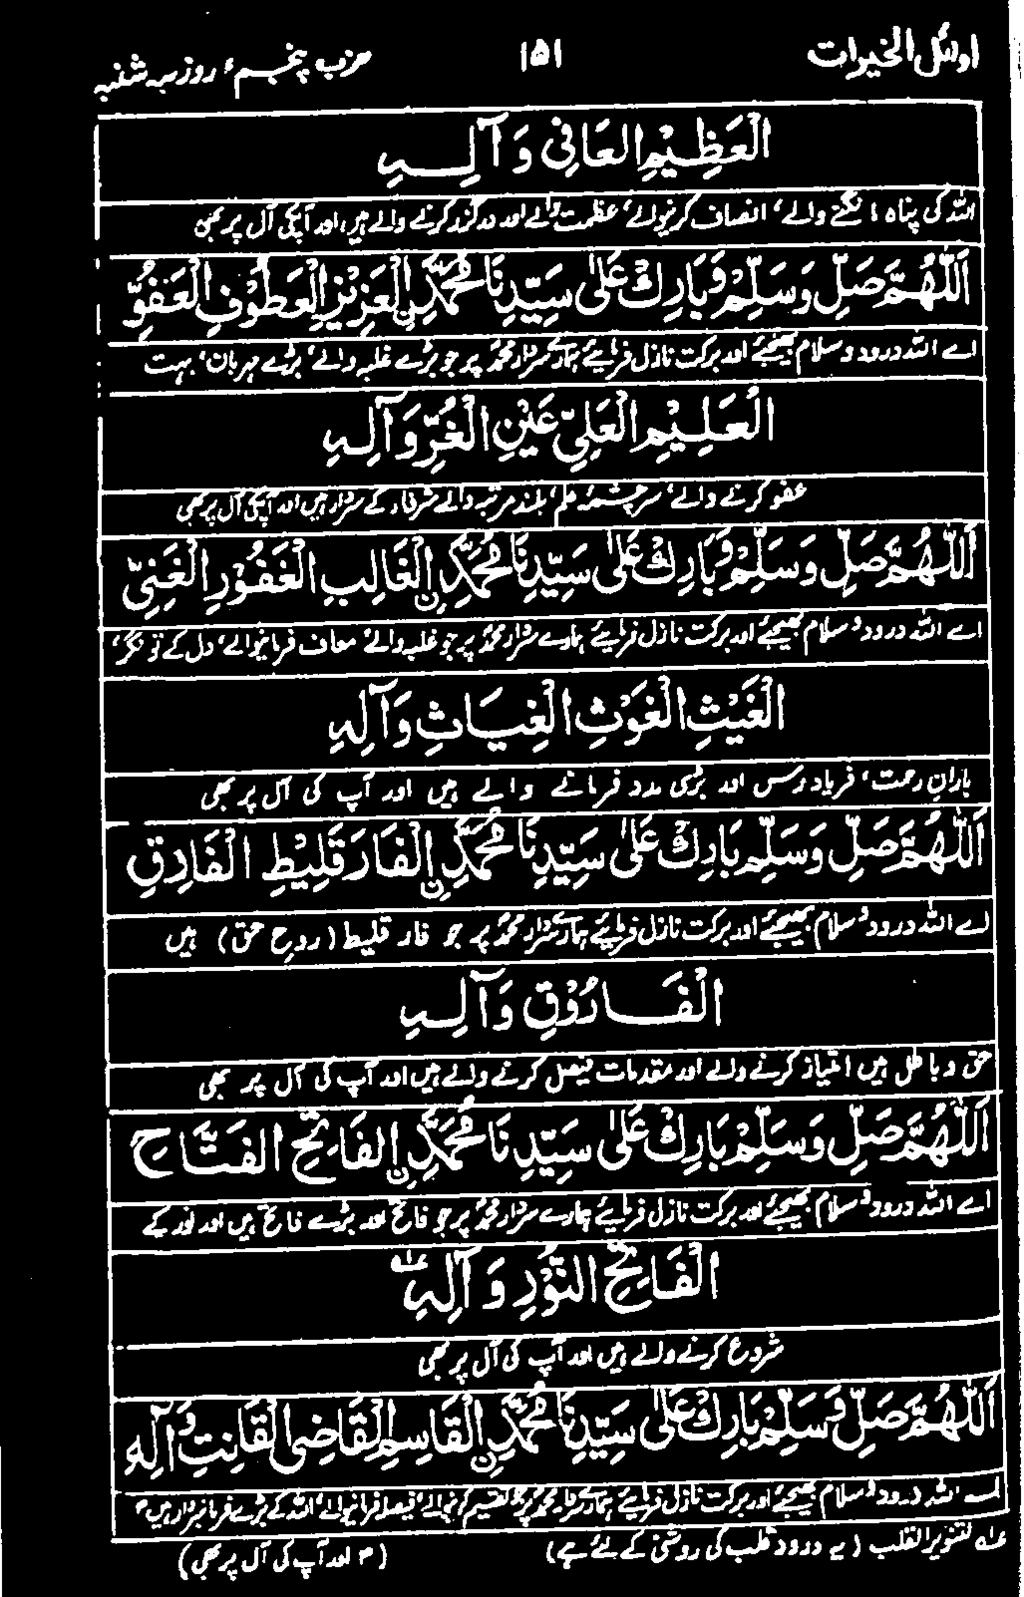 اوائل الخیرات ۱۵۱ حزب پنجم، روز سہ شنبہ
الْعَظِيْمِ الْعَافِيْ وَآلِهِ
اللہ کی پناہ مانگنے والے، انصاف کرنیوالے، عظمت والے اور درگزر کرنے والے ہیں، اور آپکی آل پر بھی
اَللّٰهُمَّ صَلِّ وَسَلِّمْ وَبَارِكْ عَلٰى سَيِّدِنَا مُحَمَّدِنِ الْعَزِيْزِ الْعَطُوْفِ الْعَفُوِّ
اے اللہ درود و سلام بھیجئے اور برکت نازل فرمایئے ہمارے سردار محمدؐ پر جو بڑے غلبہ والے، بڑے مہربان، بہت
الْعَلِيْمِ الْعَلِيِّ عَيْنِ الْغُرِّ وَآلِهِ
عفو کرنے والے، سرچشمۂ علم، بلند مرتبہ والے شرفاء کے سردار ہیں اور آپکی آل پر بھی
اَللّٰهُمَّ صَلِّ وَسَلِّمْ وَبَارِكْ عَلٰى سَيِّدِنَا مُحَمَّدِنِ الْغَالِبِ الْغَفُوْرِ الْغَنِيِّ
اے اللہ درود و سلام بھیجئے اور برکت نازل فرمایئے ہمارے سردار محمدؐ پر جو غلبہ والے، معاف فرمانیوالے، دل کے تونگر،
الْغَيْثِ الْغَوْثِ الْغِيَاثِ وَآلِهِ
باران رحمت، فریاد رس اور بڑی مدد فرمانے والے ہیں اور آپ کی آل پر بھی
اَللّٰهُمَّ صَلِّ وَسَلِّمْ وَبَارِكْ عَلٰى سَيِّدِنَا مُحَمَّدِنِ الْفَارَقَلِيْطِ الْفَارِقِ
اے اللہ درود و سلام بھیجئے اور برکت نازل فرمایئے ہمارے سردار محمدؐ پر جو فار قلیط (روح حق) ہیں
الْفَارُوْقِ وَآلِهِ
حق و باطل میں امتیاز کرنے والے اور مقدمات فیصل کرنے والے ہیں اور آپ کی آل پر بھی
اَللّٰهُمَّ صَلِّ وَسَلِّمْ وَبَارِكْ عَلٰى سَيِّدِنَا مُحَمَّدِنِ الْفَاتِحِ الْفَتَّاحِ
اے اللہ درود و سلام بھیجئے اور برکت نازل فرمایئے ہمارے سردار محمدؐ پر جو فاتح اور بڑے فاتح ہیں اور نور کے
الْفَاتِحِ النُّوْرِ وَآلِهِ ؎۱
شروع کرنے والے ہیں اور آپ کی آل پر بھی
اَللّٰهُمَّ صَلِّ وَسَلِّمْ وَبَارِكْ عَلٰى سَيِّدِنَا مُحَمَّدِنِ الْقَاسِمِ الْقَاضِي الْقَانِتِ وَآلِهِ
اے اللہ درود و سلام بھیجئے اور برکت نازل فرمایئے ہمارے سردار محمدؐ پر جو تقسیم کرنیوالے، فیصلہ فرمانیوالے، اللہ کے بڑے فرمانبردار ہیں ۲
؎۱ لتنویر القلب (یہ درود قلب کی روشنی کے لئے ہے) (۲ اور آپ کی آل پر بھی)